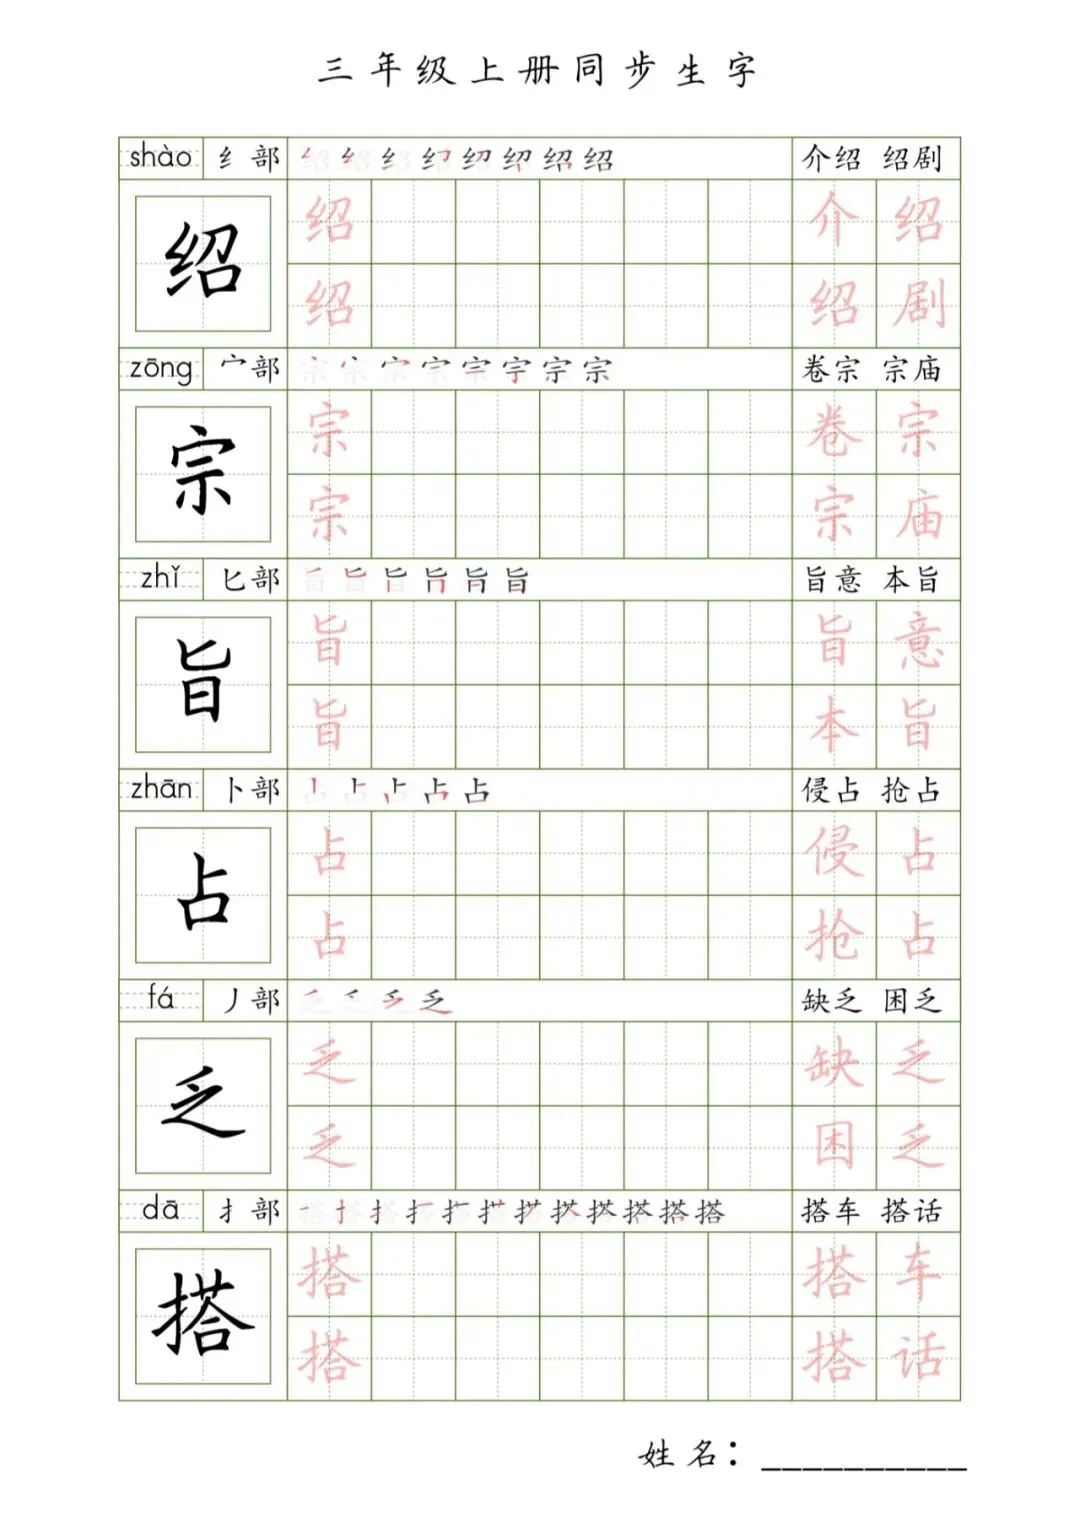 三年级上册同步生字
shào 纟部 绍绍绍绍绍绍绍绍 介绍 绍剧
绍 绍 介绍
绍 绍剧
zōng 宀部 宗宗宗宗宗宗宗宗 卷宗 宗庙
宗 宗 卷宗
宗 宗庙
zhǐ 匕部 旨旨旨旨旨旨 旨意 本旨
旨 旨 旨意
旨 本旨
zhān 卜部 占占占占占 侵占 抢占
占 占 侵占
占 抢占
fá 丿部 乏乏乏乏 缺乏 困乏
乏 乏 缺乏
乏 困乏
dā 扌部 搭搭搭搭搭搭搭搭搭搭搭搭 搭车 搭话
搭 搭 搭车
搭 搭话
姓名：__________